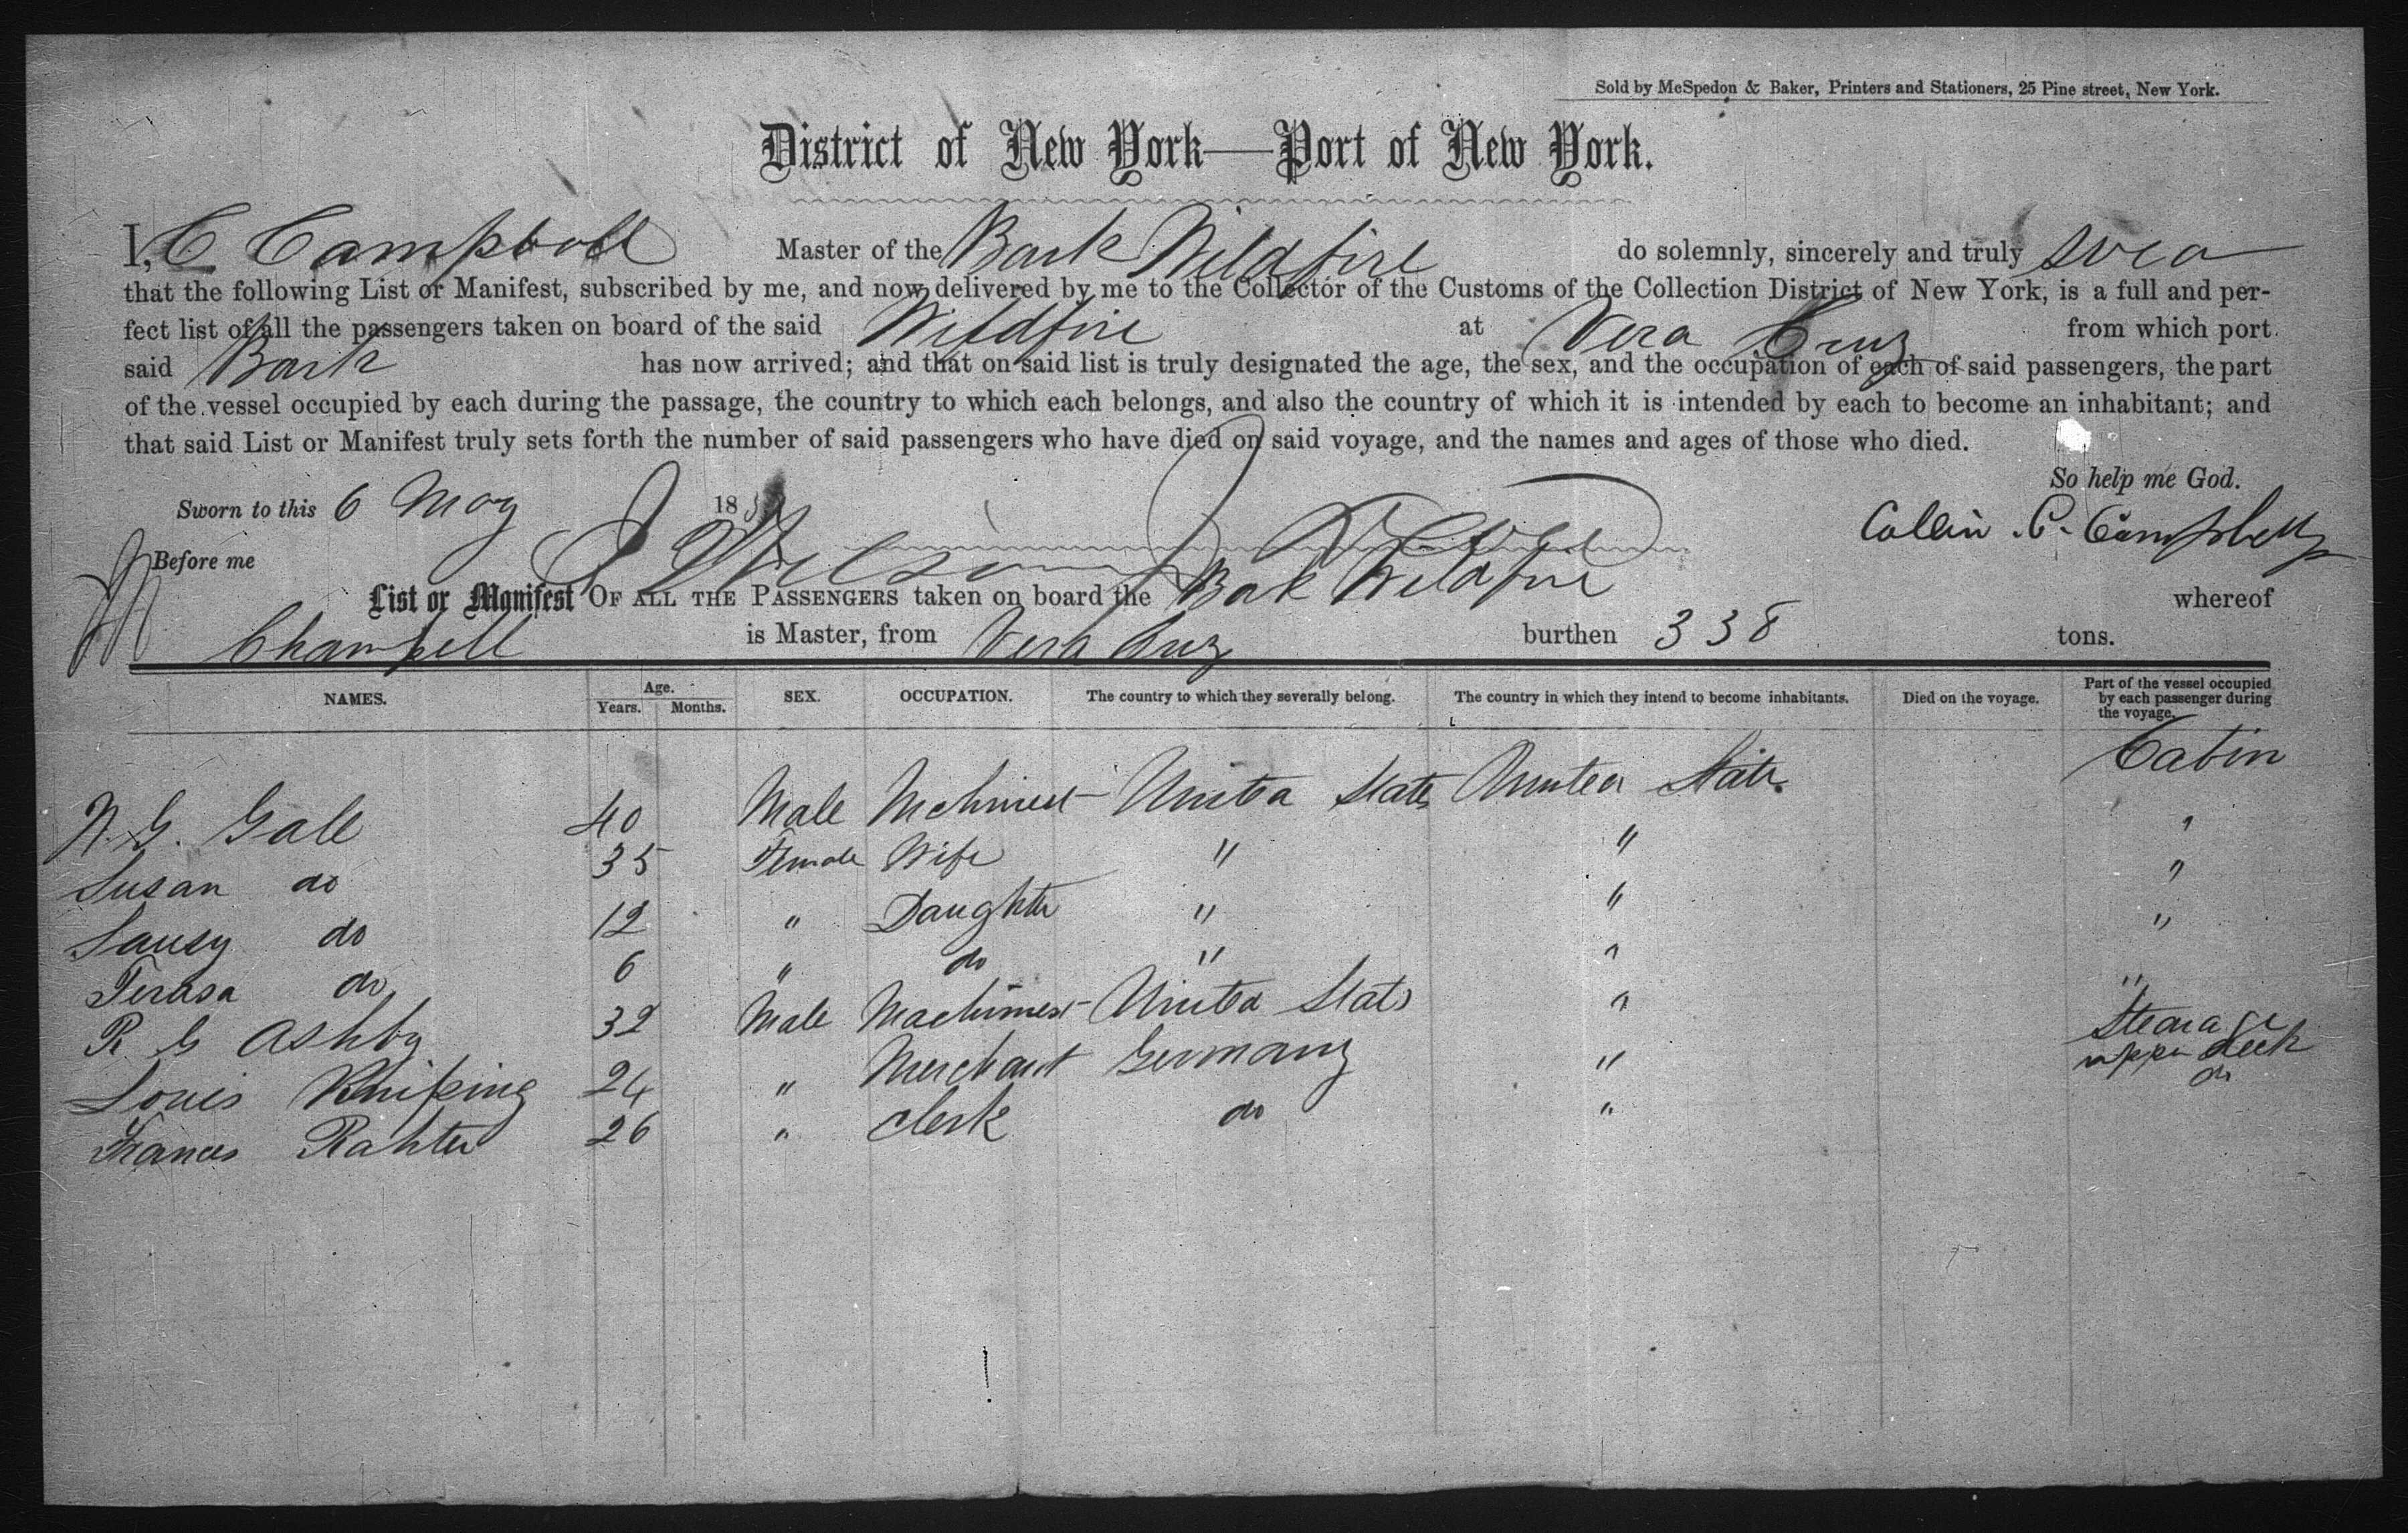 Sold by McSpedon & Baker, Printers and Stationers, 25 Pine street, New York.
District of New York—Port of New York.
I, C Campbell Master of the Bark Wildfire do solemnly, sincerely and truly swea
that the following List or Manifest, subscribed by me, and now delivered by me to the Collector of the Customs of the Collection District of New York, is a full and per-
fect list of all the passengers taken on board of the said Wildfire at Vera Cruz from which port
said Bark has now arrived; and that on said list is truly designated the age, the sex, and the occupation of each of said passengers, the part
of the vessel occupied by each during the passage, the country to which each belongs, and also the country of which it is intended by each to become an inhabitant; and
that said List or Manifest truly sets forth the number of said passengers who have died on said voyage, and the names and ages of those who died.
So help me God.
Sworn to this 6 May 18
Collin C. Campbell
Before me
List or Manifest OF ALL THE PASSENGERS taken on board the Bark Wildfire whereof
Champell is Master, from Vera Cruz burthen 338 tons.
NAMES. Age. Years. Months. SEX. OCCUPATION. The country to which they severally belong. The country in which they intend to become inhabitants. Died on the voyage. Part of the vessel occupied by each passenger during the voyage.
N. G. Gale 40 Male United States United States Cabin
Susan do 35 Female Wife " " "
do 12 " Daughter " " "
Terasa do 6 " do " " "
R G Ashby 32 Male Machinest United Stats " "
Louis Knipeing 24 " Merchant Germany " Stearage upper deck
Frances Rahter 26 " Clerk do " do